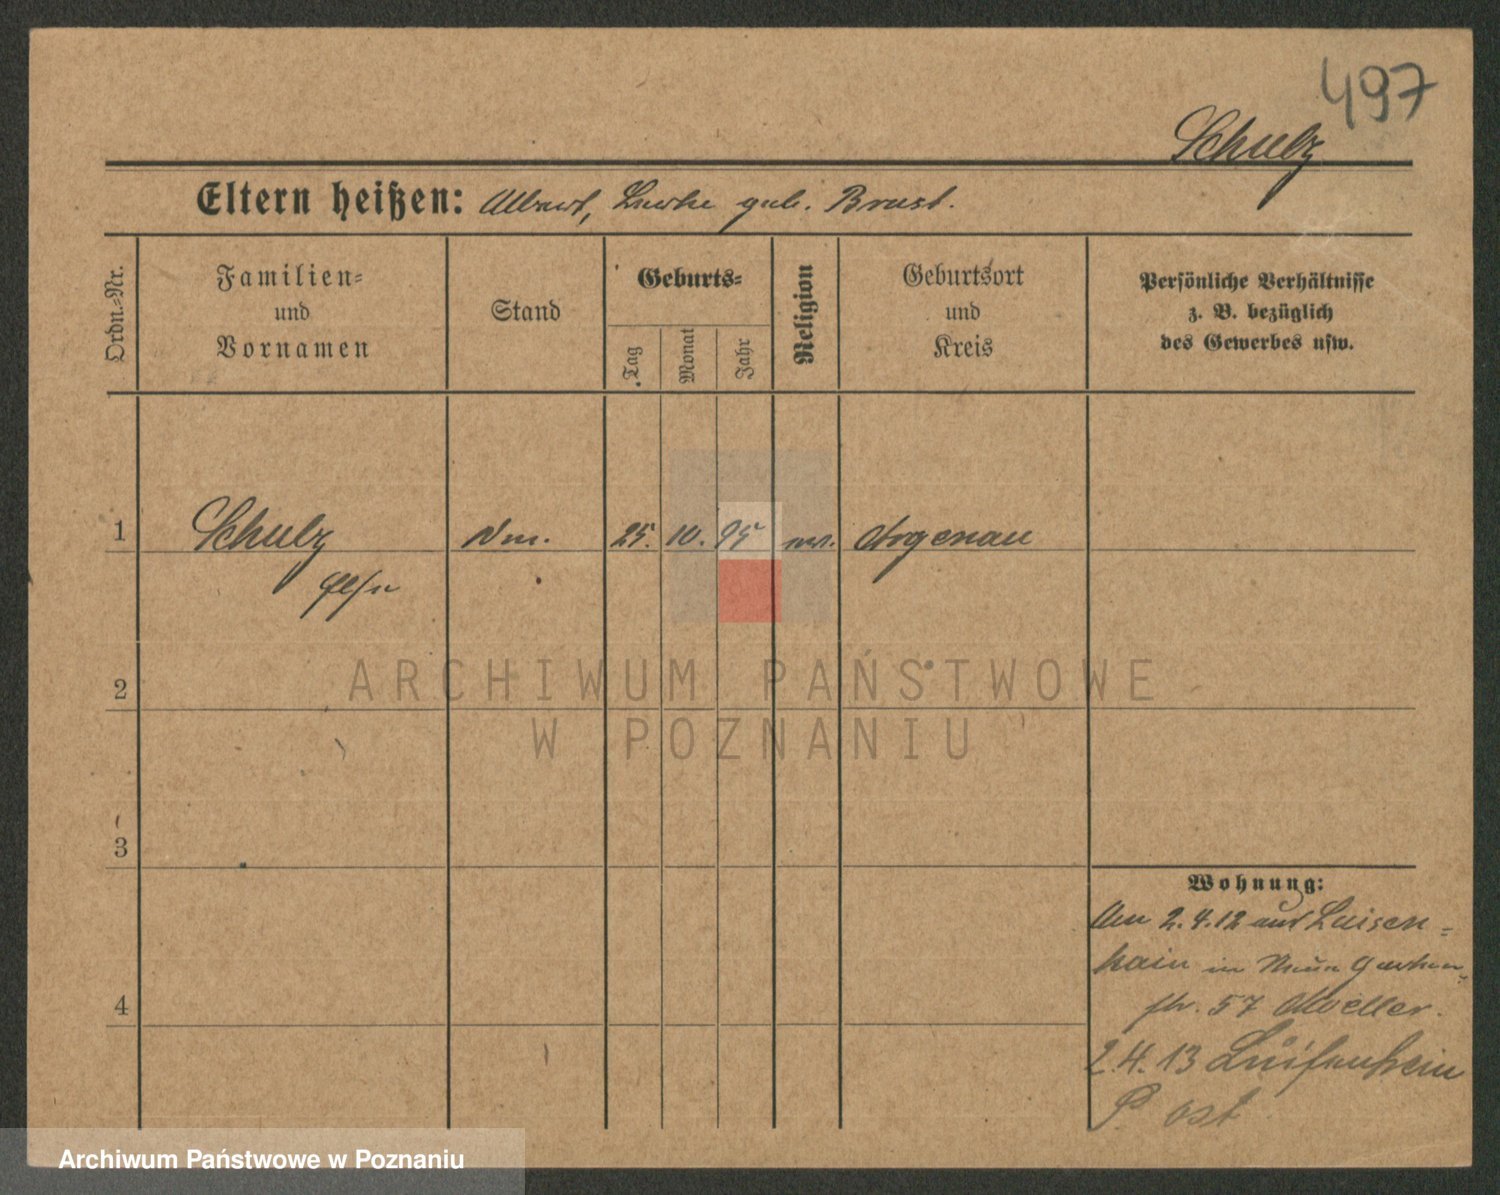 497
Schulz
Eltern heißen: Albert, geb. Brust.
Ordn.-Nr.
Familien-
und
Vornamen
Stand
Geburts-
Tag
Monat
Jahr
Religion
Geburtsort
und
Kreis
Persönliche Verhältnisse
z. B. bezüglich
des Gewerbes usw.
1 Schulz 25. 10. 95 Argenau
Else
2
3
4
Wohnung:
Am 2.4.12 aus Luisen-
hain in Neue Garten-
str. 57 Moeller.
2.4.13 Luisenhain
P. ost
ARCHIWUM PAŃSTWOWE
W POZNANIU
Archiwum Państwowe w Poznaniu